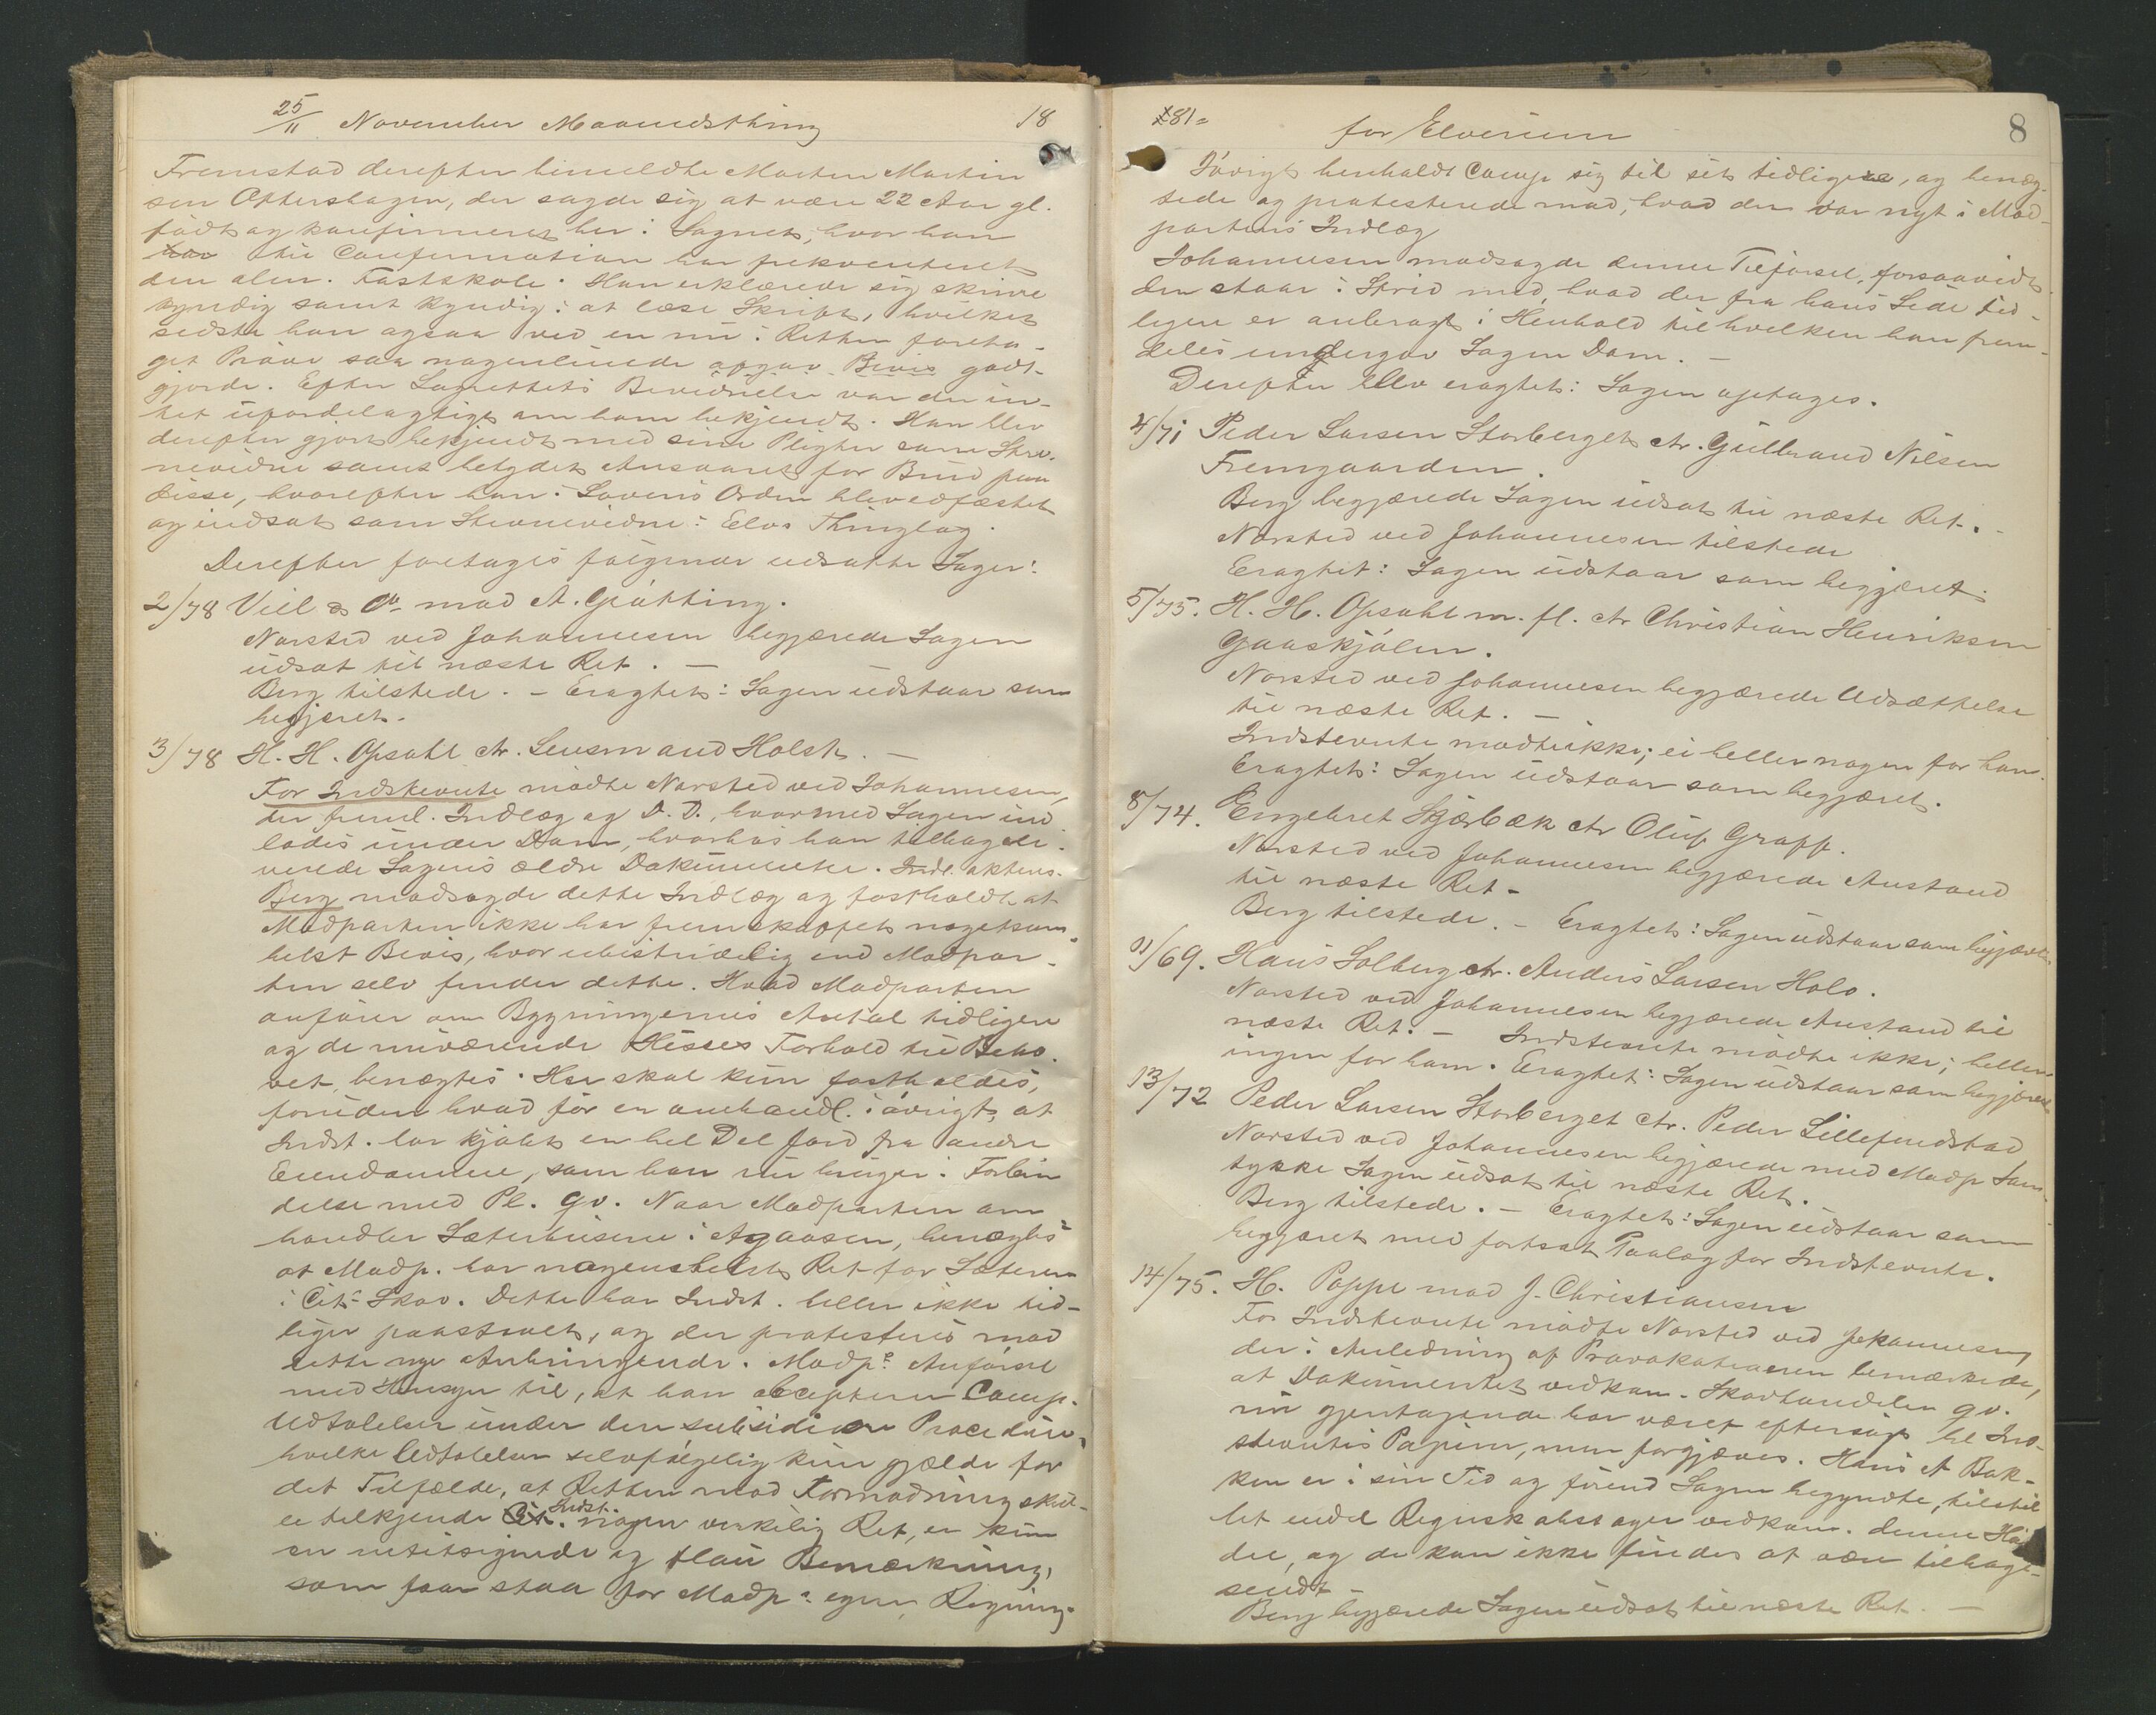 25/11 November Maanedsthing 18
Fremstod derefter bemeldte Morten Martin
sen Ottershagen, der sagde sig at være 22 Aar gl.
født og konfirmeret her i Sognet, hvor han
har til Confirmation har frekventeret
den alm. Fastskole. Han erklærede sig skrive
kyndig samt kyndig i at læse Skrift, hvilket
sidste han ogsaa ved en nu i Retten foreta-
get Prøve saa nogenlunde afgav Bevis godt-
gjorde. Efter Lagrettets Bevidnelse var der in-
tet ufordelagtigt om ham bekjendt. Han blev
derefter gjort bekjendt med sine Pligter som Stev-
nevidne samt betydet Ansvaret for Brud paa
disse, hvorefter han i Lovens Orden blev edfæstet
og indsat som Stevnevidne i Elvs Thinglag.
Derefter foretages følgende udsatte Sager:
2/78 Viel & Co mod A. Grøtting.
Norsted ved Johannesen begjærede Sagen
udsat til næste Ret. —
Berg tilstede. — Eragtet: Sagen udstaar som
begjæret.
3/78 H. H. Opsahl ctr. Lensmand Holst. —
For Indstevnte mødte Norsted ved Johannesen,
der freml. Indlæg og D. D., hvormed Sagen ind
lades under Dom, hvorhos han tilbagele-
verede Sagens ældre Dokumenter. Indl. aktens.
Berg modsagde dette Indlæg og fastholdt at
Modparten ikke har fremskaffet nogetsom-
helst Bevis, hvor ubestridelig end Modpar-
ten selv finder dette. Hvad Modparten
anfører om Bygningernes Antal tidligere
og de nuværende Huses Forhold til Beho-
vet, benægtes. Her skal kun fastholdes,
foruden hvad før er anhandl. i øvrigt, at
Indst. har kjøbt en hel Del Jord fra andre
Eiendomme, som han nu bruger i Forbin
delse med Pl. qv. Naar Modparten om
handler Sæterhusene i Agaasen, benægtes
at Modp. har nogensomhelst Ret for Sæteren
i Cit.s Skov. Dette har Indst. heller ikke tid-
ligere paastaaet, og der protesteres mod
dette nye Anbringende. Modp.s Anførsel
med Hensyn til, at han accepterer Comp.
Udtalelser under den subsidiære Procedure,
hvilke Udtalelser selvfølgelig kun gjælde for
det Tilfælde, at Retten mod Formodning skul-
le tilkjende Cit. Indst. nogen virkelig Ret, er kun
en intetsigende og flau Bemærkning,
som faar staa for Modp.s egen Regning.
1881 =
for Elverum
8
Iøvrigt henholdt Comp sig til sit tidligere, og benæg-
tede og protesterede mod, hvad der var nyt i Mod-
partens Indlæg
Johannesen modsagde denne Tilførsel, forsaavidt
den staar i Strid med, hvad der fra hans Side tid-
ligere er anbragt i Henhold til hvilken han frem-
deles undergav Sagen Dom. —
Derefter blev eragtet: Sagen optages.
4/71 Peder Larsen Storberget ctr. Gulbrand Nilsen
Fremgaarden.
Berg begjærede Sagen udsat til næste Ret. —
Norsted ved Johannesen tilstede
Eragtet: Sagen udstaar som begjæret.
5/75. H. H. Opsahl m. fl. ctr Christian Henriksen
Gaaskjølen.
Norsted ved Johannesen begjærede Udsættelse
til næste Ret. —
Indstevnte mødte ikke; ei heller nogen for ham.
Eragtet: Sagen udstaar som begjæret.
8/74. Engebret Skjærbæk ctr Oluf Graff.
Norsted ved Johannesen begjærede Anstand
til næste Ret —
Berg tilstede. — Eragtet: Sagen udstaar som begjæret.
11/69. Hans Solberg ctr. Anders Larsen Holo.
Norsted ved Johannesen begjærede Anstand til
næste Ret. — Indstevnte mødte ikke; heller
ingen for ham. Eragtet: Sagen udstaar som begjæret
13/72 Peder Larsen Storberget ctr. Peder Lillefundstad
Norsted ved Johannesen begjærede med Modp Sam-
tykke Sagen udsat til næste Ret.
Berg tilstede. — Eragtet: Sagen udstaar som
begjæret med fortsat Paalæg for Indstevnte.
14/75. H. Poppe mod J. Christiansen
For Indstevnte mødte Norsted ved Johannesen
der i Anledning af Provokationen bemærkede,
at Dokumentet vedkom. Skovhandelen qv.
nu gjentagende har været eftersøgt bl Ind-
stevntes Papirer, men forgjæves. Hans A Bak-
ken er i sin Tid og førend Sagen begyndte, tilstil
let endel Regnskabssager vedkom. denne Han
del, og de kan ikke findes at være tilbage-
sendt —
Berg begjærede Sagen udsat til næste Ret. —